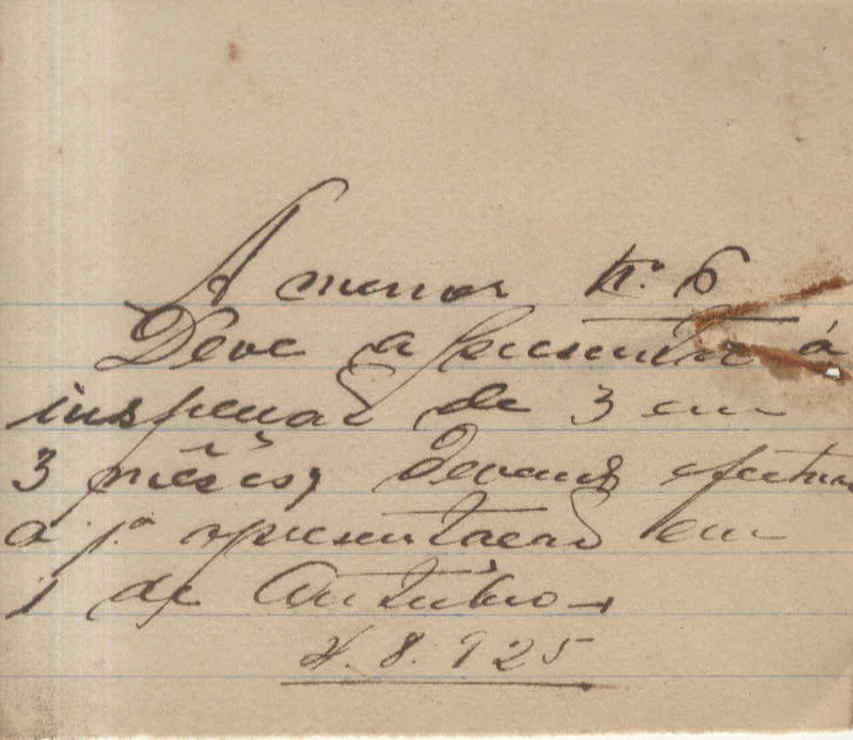 A menor Nº 6
Deve apresentar á
inspeção de 3 em
3 mêses, devendo efectuar
a 1ª apresentação em
1 de Outubro
8. 925